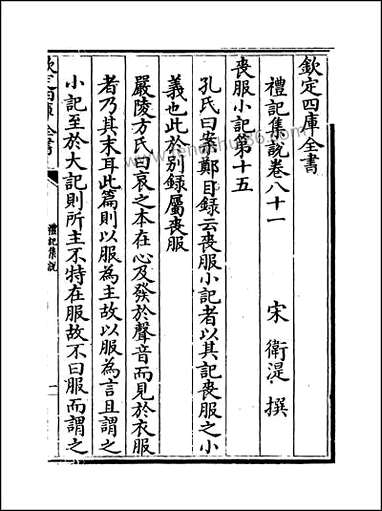 欽定四庫全書
禮記集說卷八十一
宋 衛湜 撰
喪服小記第十五
孔氏曰案鄭目錄云喪服小記者以其記喪服之小
義也此於别録屬喪服
嚴陵方氏曰哀之本在心及發於聲音而見於衣服
者乃其末耳此篇則以服為主故以服為言且謂之
小記至於大記則所主不特在服故不曰服而謂之
欽定四庫全書
禮記集說
一